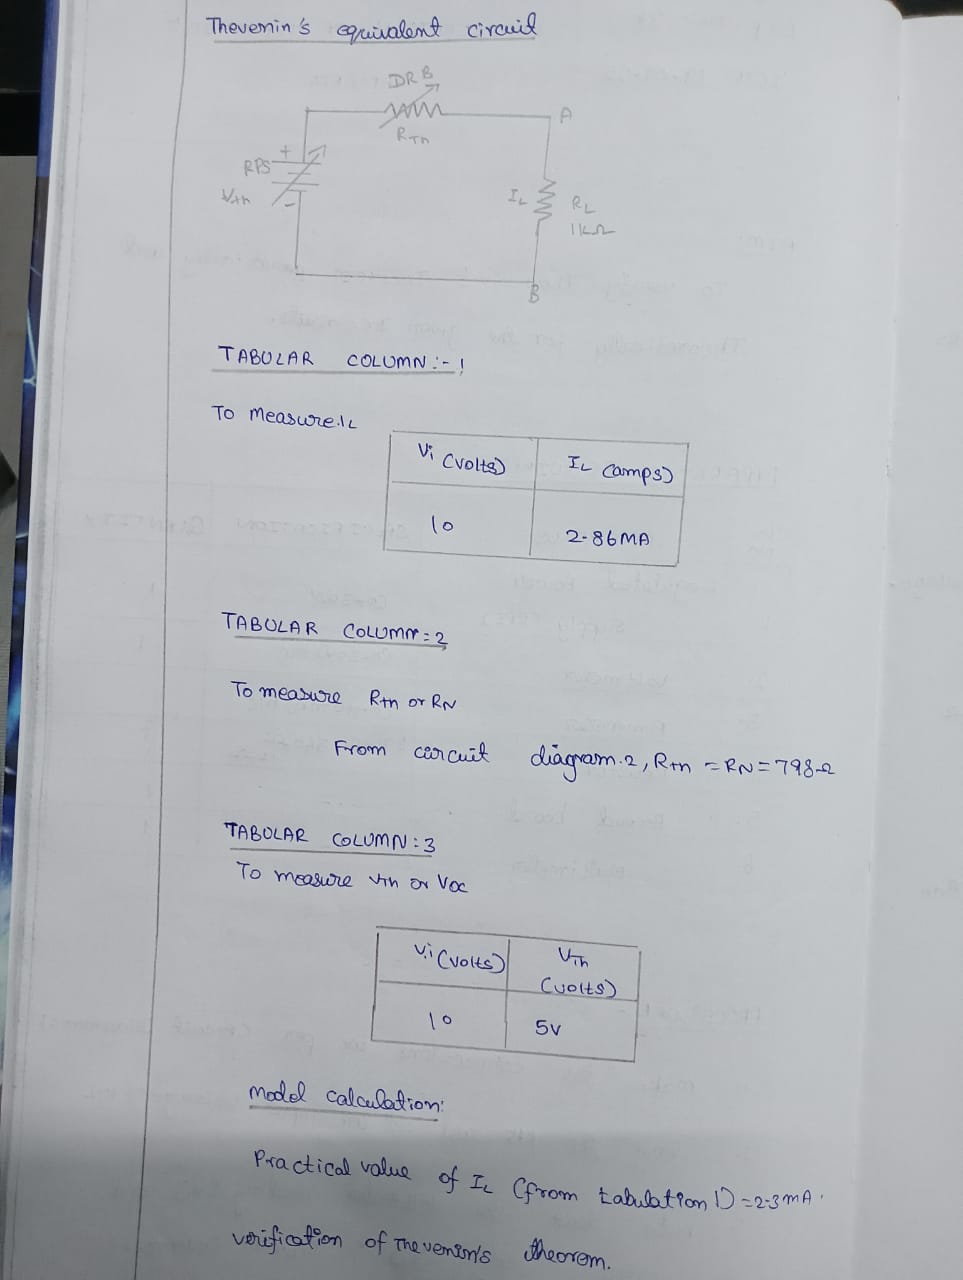 Thevenin's equivalent circuit
DRB
RTh
A
+
RPS
Vth
-
IL
RL
1KΩ
B
TABULAR COLUMN :- 1
To Measure IL
Vi (volts) IL (amps)
10 2.86MA
TABULAR COLUMN = 2
To measure Rth or RN
From circuit diagram.2, Rth = RN = 798Ω
TABULAR COLUMN : 3
To measure Vth or Voc
Vi (volts) VTh
(volts)
10 5V
Model calculation:
Practical value of IL (from tabulation 1) = 2.3mA.
verification of Thevenin's theorem.